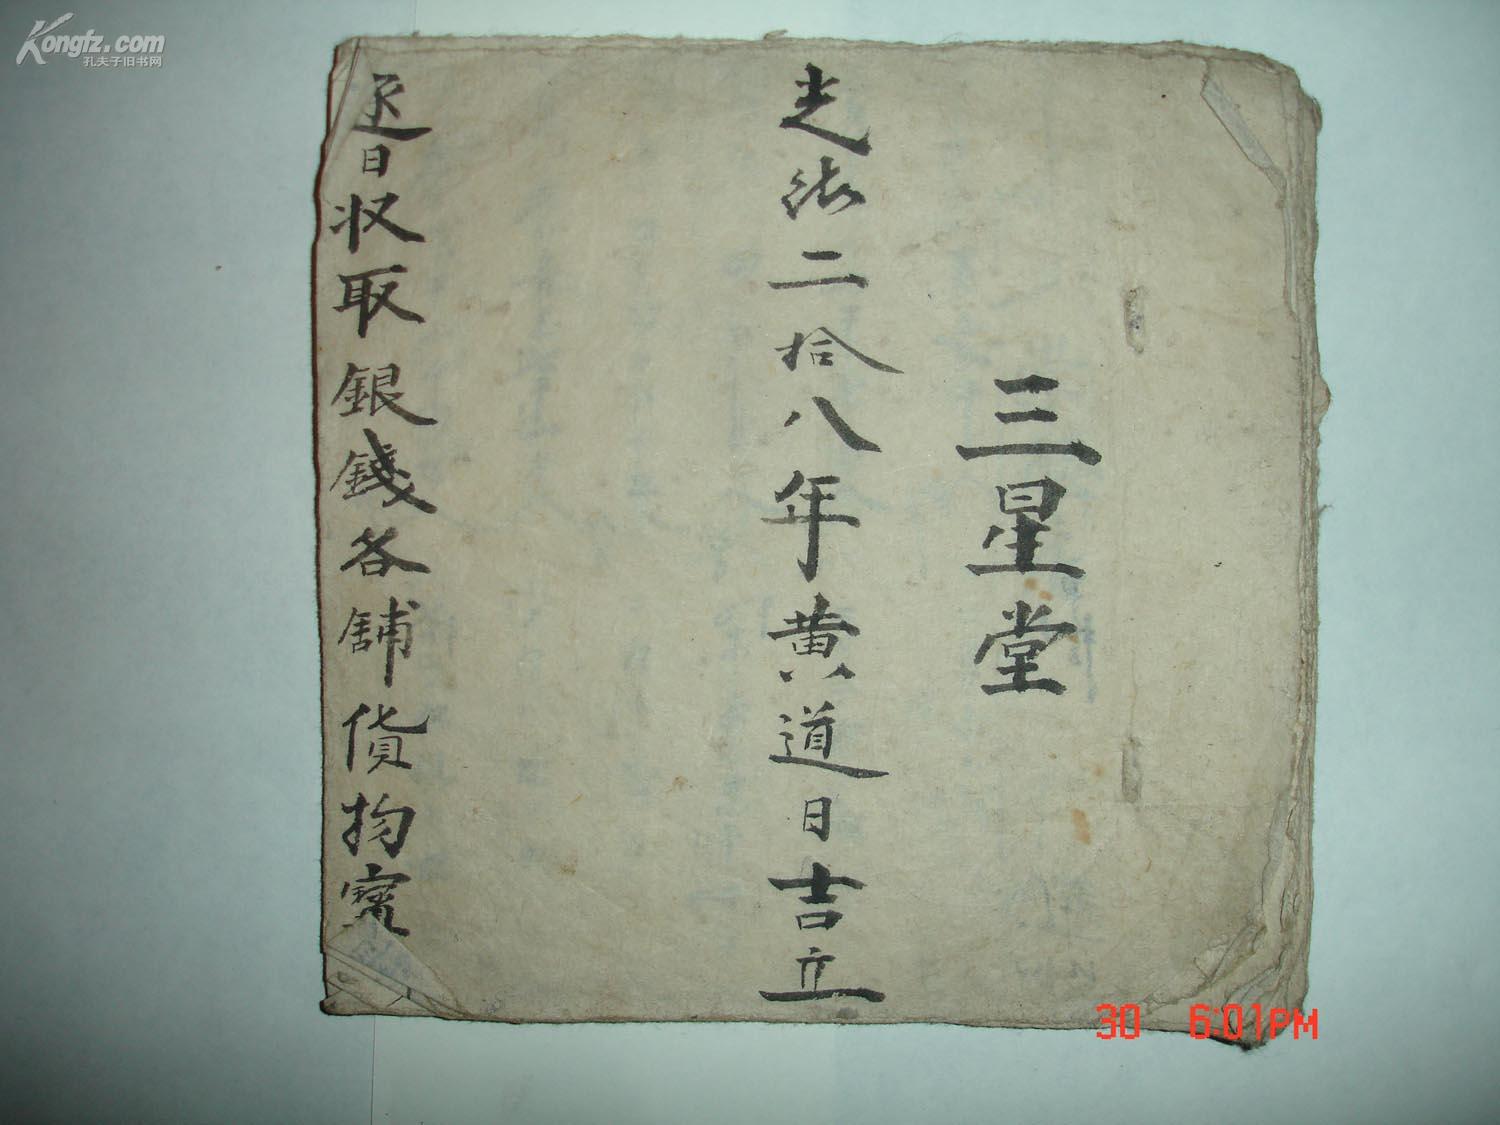 Kongfz.com
孔夫子旧书网
三星堂
光緒二拾八年黄道日吉立
逐日収取銀錢各舖貨物寳
30 6:01PM